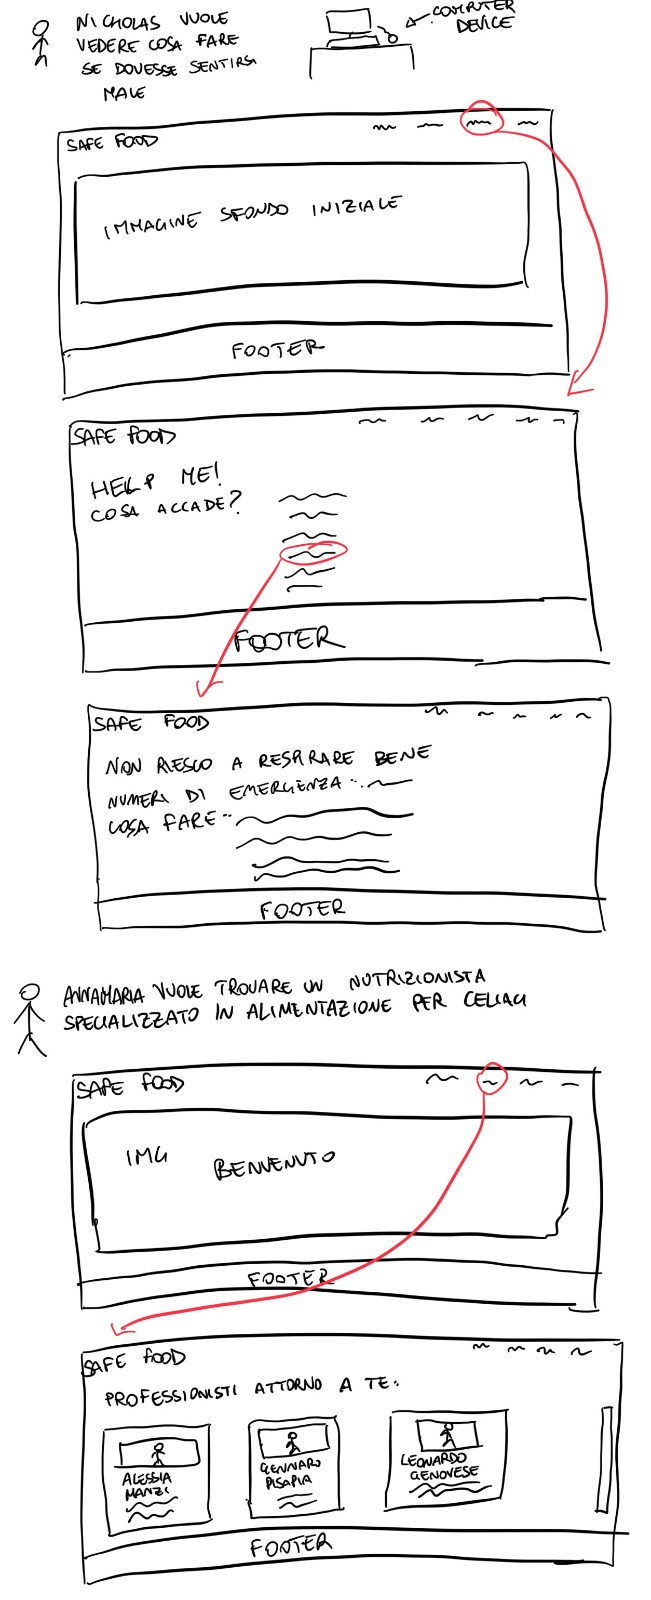 NICHOLAS VUOLE
VEDERE COSA FARE
SE DOVESSE SENTIRSI
MALE
COMPUTER
DEVICE
SAFE FOOD
IMMAGINE SFONDO INIZIALE
FOOTER
SAFE FOOD
HELP ME!
COSA ACCADE?
FOOTER
SAFE FOOD
NON RIESCO A RESPIRARE BENE
NUMERI DI EMERGENZA:
COSA FARE:
FOOTER
ANNAMARIA VUOLE TROVARE UN NUTRIZIONISTA
SPECIALIZZATO IN ALIMENTAZIONE PER CELIACI
SAFE FOOD
IMG BENVENUTO
FOOTER
SAFE FOOD
PROFESSIONISTI ATTORNO A TE:
ALESSIA
MANZI
GENNARO
PISAPIA
LEONARDO
GENOVESE
FOOTER